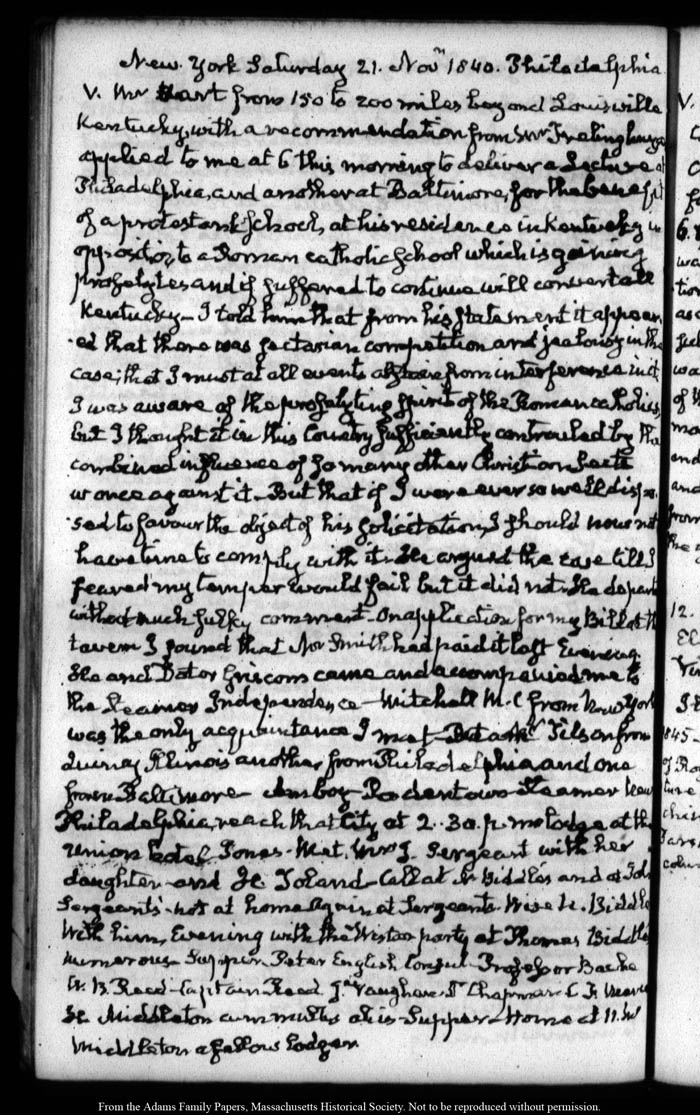 New-York Saturday 21. Novr. 1840. Philadelphia
V. Mr Hart from 150 to 200 miles beyond Louisville
Kentucky, with a recommendation from Mr Frelinghuysen
applied to me at 6 this morning to deliver a Lecture at
Philadelphia, and another at Baltimore, for the benefit
of a protestant School, at his residence in Kentucky in
opposition to a Roman catholic School which is gaining
proselytes and if suffered to continue will convert all
Kentucky— I told him that from his statement it appear-
ed that there was sectarian competition and jealousy in the
case; that I must at all events abstain from interference in it
I was aware of the proselyting spirit of the Roman catholics,
but I thought it in this Country sufficiently controuled by the
combined influence of so many other Christian sects
w once against it— But that if I were ever so well dispo-
sed to favour the object of his solicitation, I should now not
have time to comply with it. He argued the case till I
feared my temper would fail but it did not. He departed
without much sulky comment— On application for my Bill at the
tavern I found that Mr Smith had paid it last Evening.
He and Dator Griscom came and accompanied me to
the steamer Independence— Mitchell M.C. from New York
was the only acquaintance I met— But a Mr Tilson from
Quincy Illinois another from Philadelphia and one
from Baltimore— Amboy Bodentown Steamer New
Philadelphia, reach that City at 2. 30. p.m. lodge at the
Union hotel Jones— Met. Mrs J. Sergeant with her
daughter— and H. Toland— Call at N. Biddle's and at John
Sergeants— not at home Again at Sergeants. Wise N. Biddle
With him, Evening with the Wistar party at Thomas Biddle's
numerous— Supper. Peter English Consul— Professor Bache
W. B. Reed— Captain Read Jn Vaughan Dr Chapman C J
H Middleton cum multis aliis— Supper— Home at 11. W
Middleton a fellow lodger
From the Adams Family Papers, Massachusetts Historical Society. Not to be reproduced without permission.